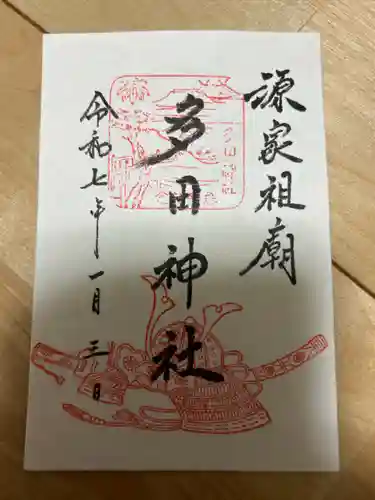 源家祖廟
多田神社
令和七年一月三日
多田神社